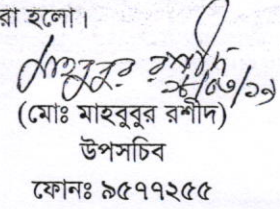 রা হলো।
মাহবুবুর রশীদ
(মোঃ মাহবুবুর রশীদ)
উপসচিব
ফোনঃ ৯৫৭৭২৫৫